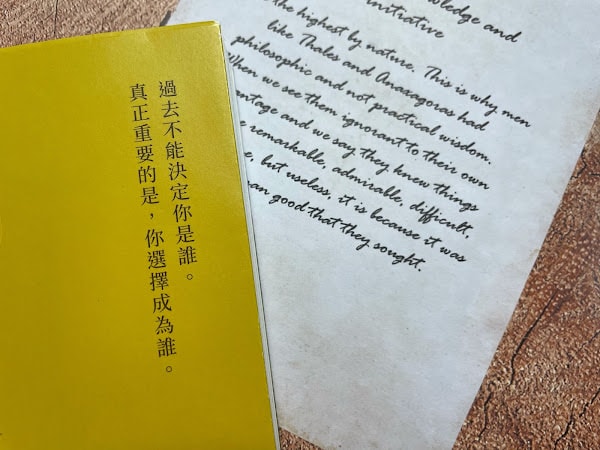 過去不能決定你是誰。
真正重要的是，你選擇成為誰。
and
initiative
the highest by nature. This is why men
like Thales and Anaxagoras had
philosophic and not practical wisdom.
When we see them ignorant to their own
and we say they knew things
remarkable, admirable, difficult,
but useless, it is because it was
good that they sought.